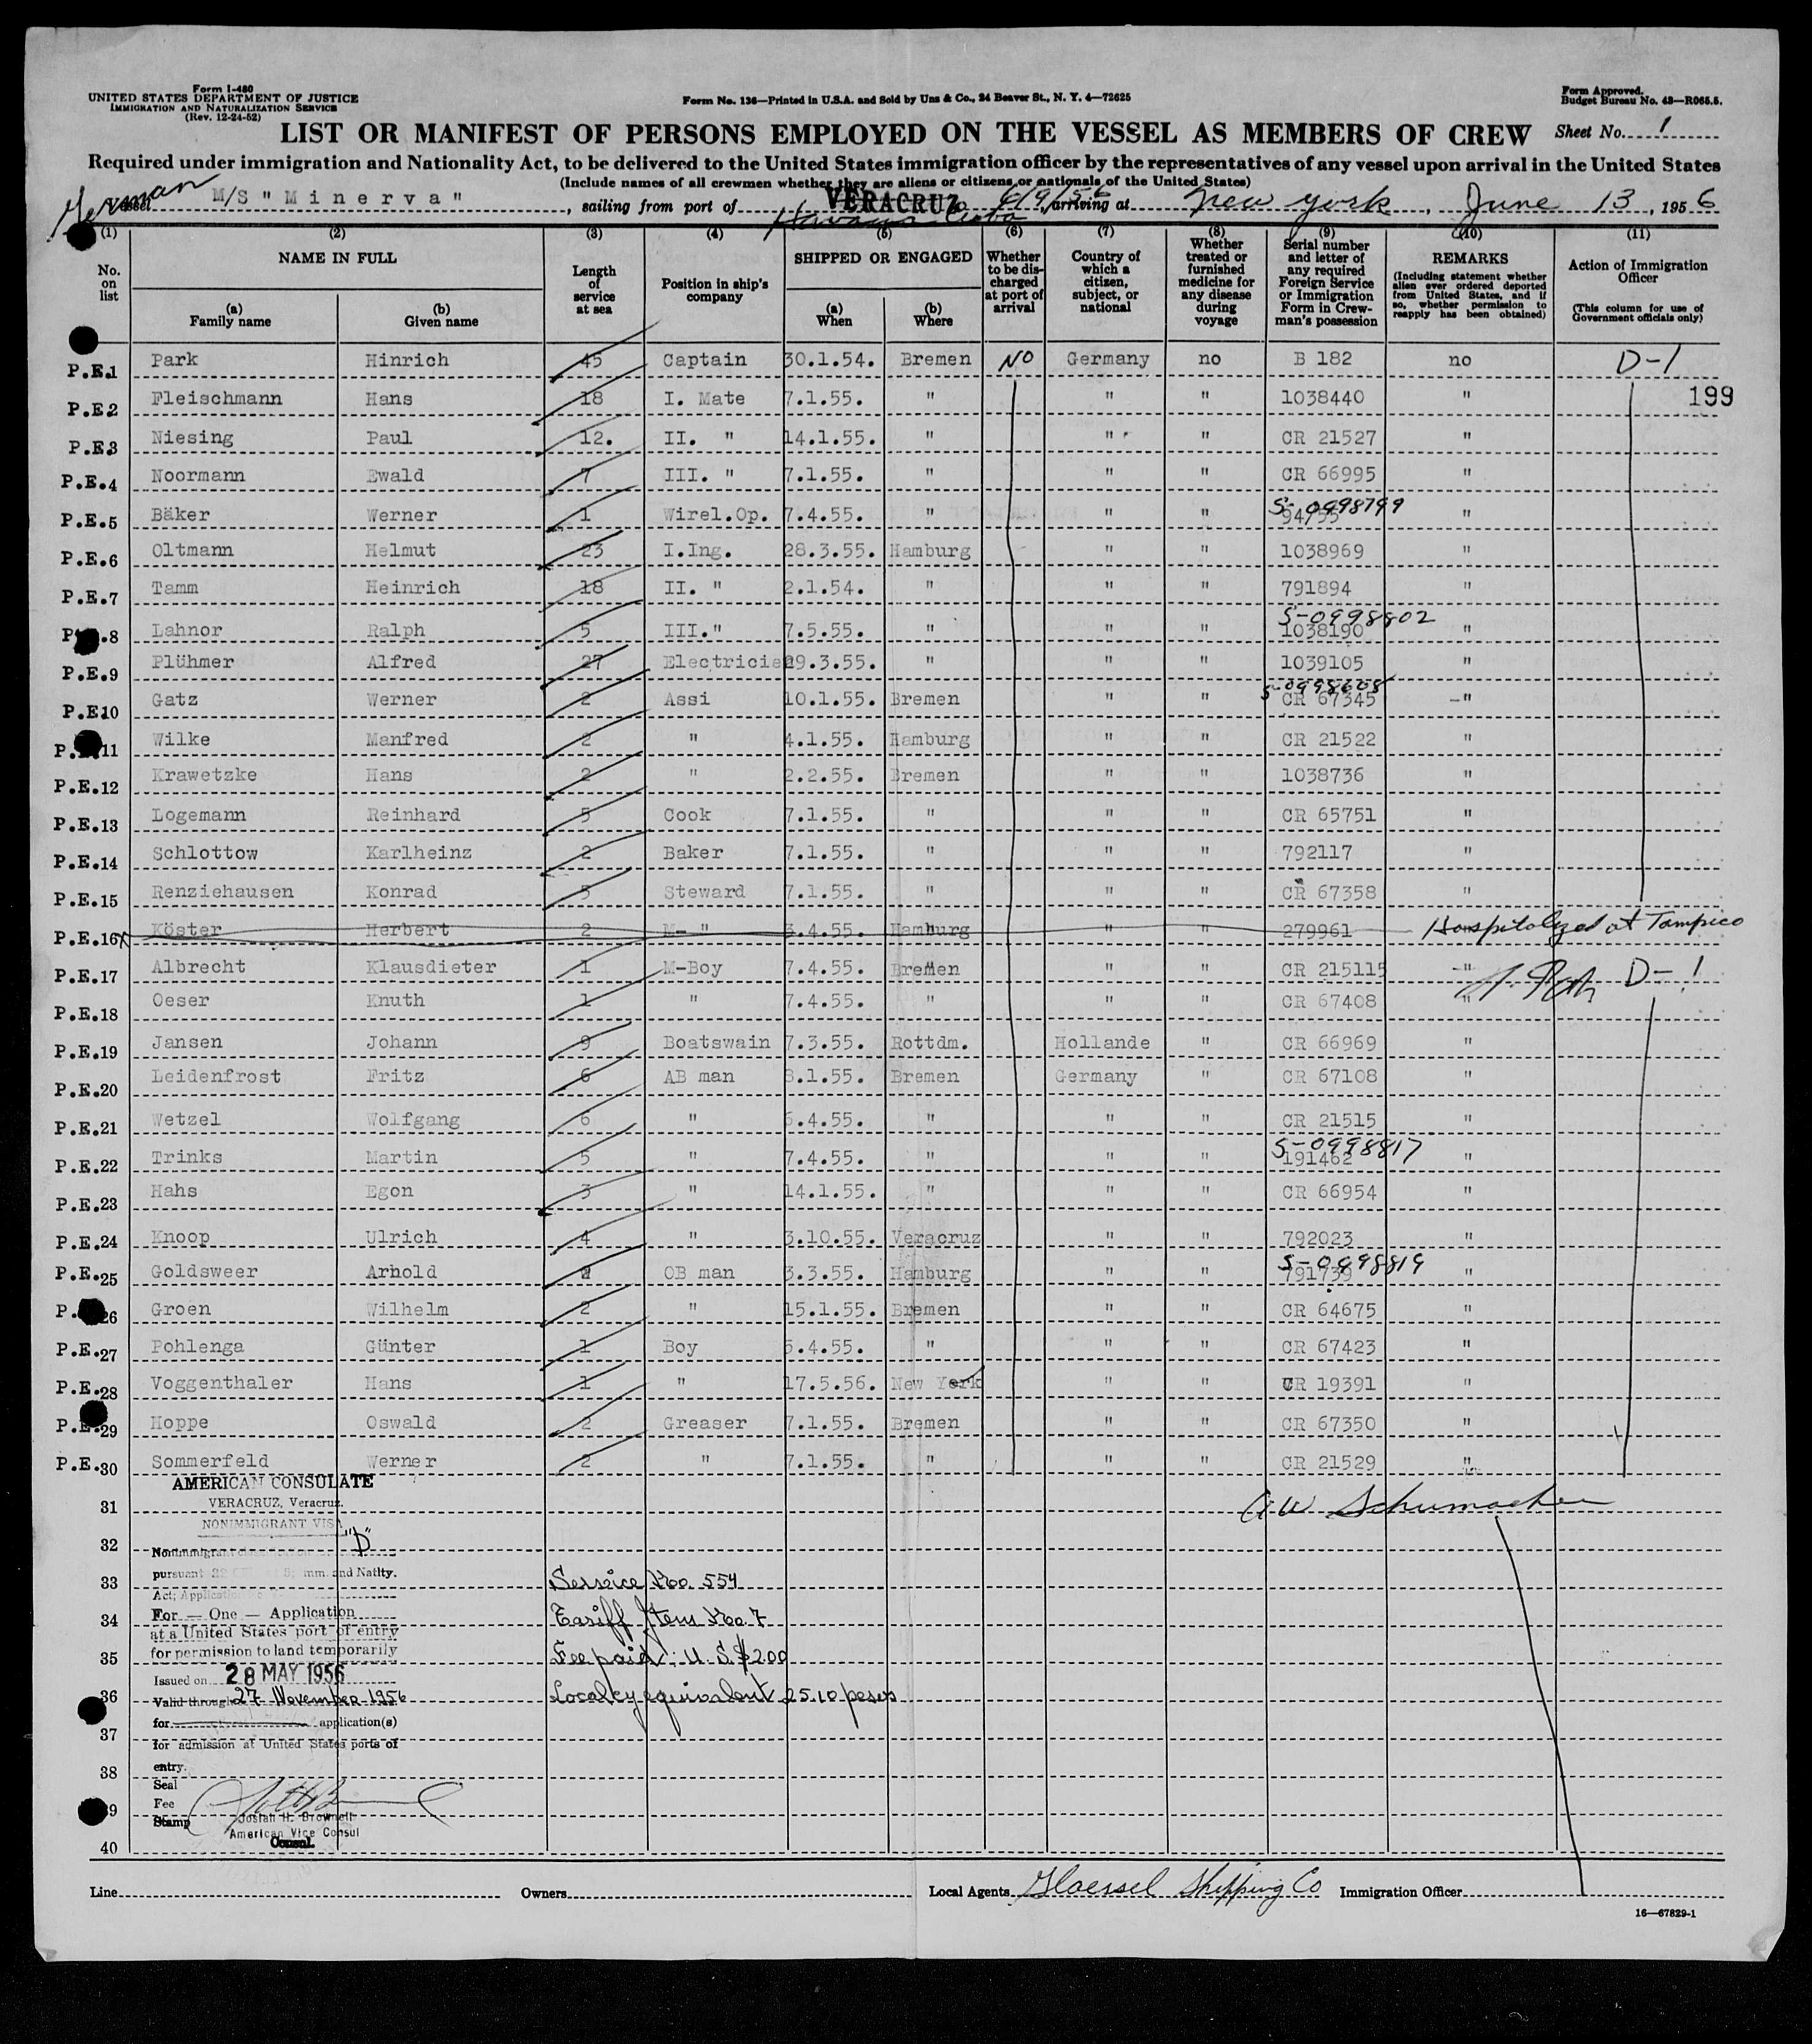 Form I-480
UNITED STATES DEPARTMENT OF JUSTICE
IMMIGRATION AND NATURALIZATION SERVICE
(Rev. 12-24-52)
Form No. 136—Printed in U.S.A. and Sold by Unz & Co., 24 Beaver St., N. Y. 4—72625
Form Approved.
Budget Bureau No. 43—R065.5.
LIST OR MANIFEST OF PERSONS EMPLOYED ON THE VESSEL AS MEMBERS OF CREW
Sheet No. 1
Required under immigration and Nationality Act, to be delivered to the United States immigration officer by the representatives of any vessel upon arrival in the United States
(Include names of all crewmen whether they are aliens or citizens or nationals of the United States)
German
Vessel M/S "Minerva", sailing from port of VERACRUZ 6/9/56, arriving at New York, June 13, 1956
Havana Cuba
(1) (2) (3) (4) (5) (6) (7) (8) (9) (10) (11)
No. on list
NAME IN FULL
(a) Family name
(b) Given name
Length of service at sea
Position in ship's company
SHIPPED OR ENGAGED
(a) When
(b) Where
Whether to be discharged at port of arrival
Country of which a citizen, subject, or national
Whether treated or furnished medicine for any disease during voyage
Serial number and letter of any required Foreign Service or Immigration Form in Crewman's possession
REMARKS
(Including statement whether alien ever ordered deported from United States, and if so, whether permission to reapply has been obtained)
Action of Immigration Officer
(This column for use of Government officials only)
P.E.1 Park Hinrich 45 Captain 30.1.54. Bremen NO Germany no B 182 no D-1
199
P.E.2 Fleischmann Hans 18 I. Mate 7.1.55. " " " 1038440 "
P.E.3 Niesing Paul 12. II. " 14.1.55. " " " CR 21527 "
P.E.4 Noormann Ewald 7 III. " 7.1.55. " " " CR 66995 "
P.E.5 Bäker Werner 1 Wirel.Op. 7.4.55. " " " 94/55 S-0998799 "
P.E.6 Oltmann Helmut 23 I.Ing. 28.3.55. Hamburg " " 1038969 "
P.E.7 Tamm Heinrich 18 II. " 2.1.54. " " " 791894 "
P.E.8 Lahnor Ralph 5 III." 7.5.55. " " " 1038190 S-0998802 "
P.E.9 Plühmer Alfred 27 Electrician 29.3.55. " " " 1039105 "
P.E.10 Gatz Werner 2 Assi 10.1.55. Bremen " " CR 67345 "
P.E.11 Wilke Manfred 2 " 4.1.55. Hamburg " " CR 21522 "
P.E.12 Krawetzke Hans 2 " 2.2.55. Bremen " " 1038736 "
P.E.13 Logemann Reinhard 5 Cook 7.1.55. " " " CR 65751 "
P.E.14 Schlottow Karlheinz 2 Baker 7.1.55. " " " 792117 "
P.E.15 Renziehausen Konrad 5 Steward 7.1.55. " " " CR 67358 "
P.E.16 Köster Herbert 2 M- " 3.4.55. Hamburg " " 279961 Hospitalized at Tampico
P.E.17 Albrecht Klausdieter 1 M-Boy 7.4.55. Bremen " " CR 215115 " D-1
P.E.18 Oeser Knuth 1 " 7.4.55. " " " CR 67408 "
P.E.19 Jansen Johann 9 Boatswain 7.3.55. Rottdm. Hollande " CR 66969 "
P.E.20 Leidenfrost Fritz 6 AB man 3.1.55. Bremen Germany " CR 67108 "
P.E.21 Wetzel Wolfgang 6 " 6.4.55. " " " CR 21515 "
P.E.22 Trinks Martin 5 " 7.4.55. " " " 191462 S-0998817 "
P.E.23 Hahs Egon 3 " 14.1.55. " " " CR 66954 "
P.E.24 Knoop Ulrich 4 " 3.10.55. Veracruz " " 792023 "
P.E.25 Goldsweer Arnold OB man 3.3.55. Hamburg " " 791739 S-0998819 "
P.E.26 Groen Wilhelm 2 " 15.1.55. Bremen " " CR 64675 "
P.E.27 Pohlenga Günter 1 Boy 5.4.55. " " " CR 67423 "
P.E.28 Voggenthaler Hans 1 " 17.5.56. New York " " CR 19391 "
P.E.29 Hoppe Oswald 2 Greaser 7.1.55. Bremen " " CR 67350 "
P.E.30 Sommerfeld Werner 2 " 7.1.55. " " " CR 21529 "
AMERICAN CONSULATE
31 VERACRUZ, Veracruz. A W Schumacher
NONIMMIGRANT VISA
32 Nonimmigrant "D"
33 pursuant and Natlty. Service No. 554
Act; Application
34 For — One — Application Tariff Item No. 7
at a United States port of entry
35 for permission to land temporarily Fee paid: U.S. $2.00
Issued on 28 MAY 1956
36 Valid through 27 November 1956 Local cy equivalent 25.10 pesos
for application(s)
37 for admission at United States ports of
entry.
38 Seal
Fee
39 Stamp Josiah H. Brownell
American Vice Consul
Consul.
40
Line Owners Local Agents Gloessel Shipping Co Immigration Officer
16—67829-1